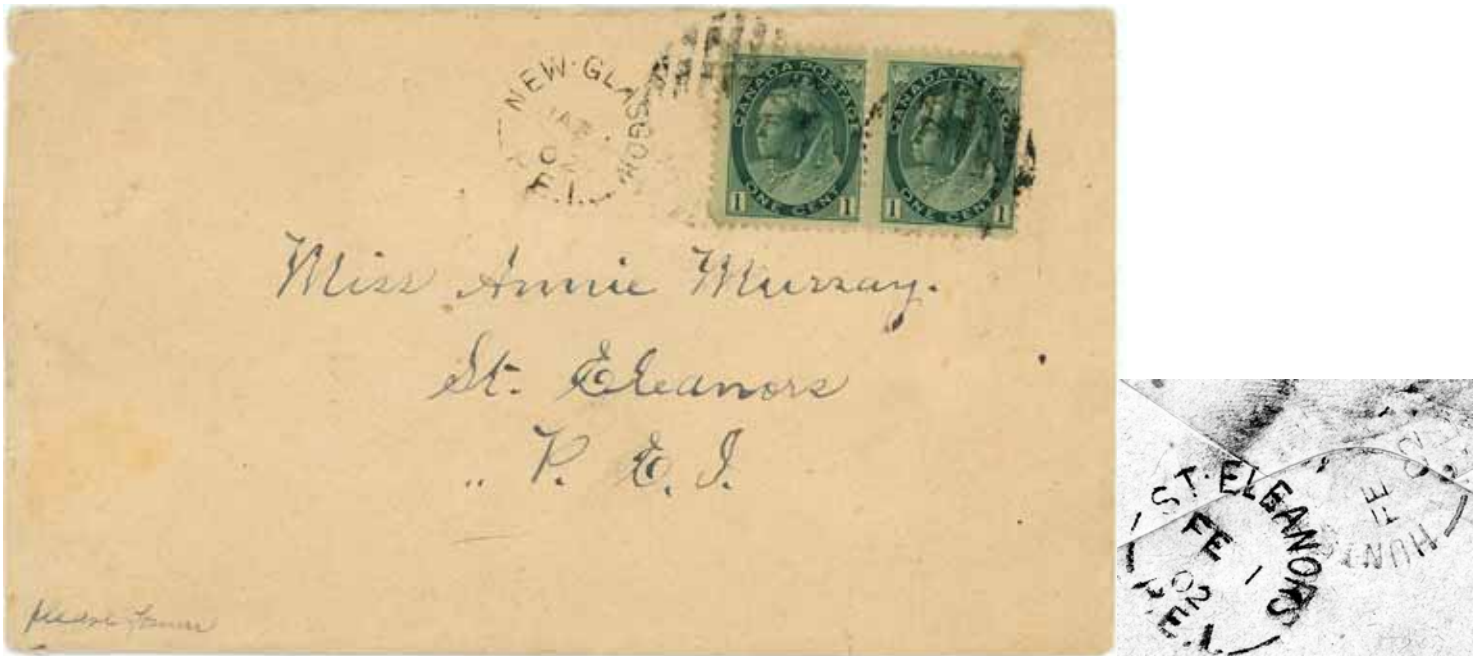 NEW·GLASGOW
JA
02
P.E.I.
CANADA POSTAGE
ONE CENT
1 1
CANADA POSTAGE
ONE CENT
1 1
Miss Annie Murray.
St. Eleanors
.. P. E. I.
Please
ST·ELEANORS
FE 1
02
P.E.I.
HUNT
FE
02